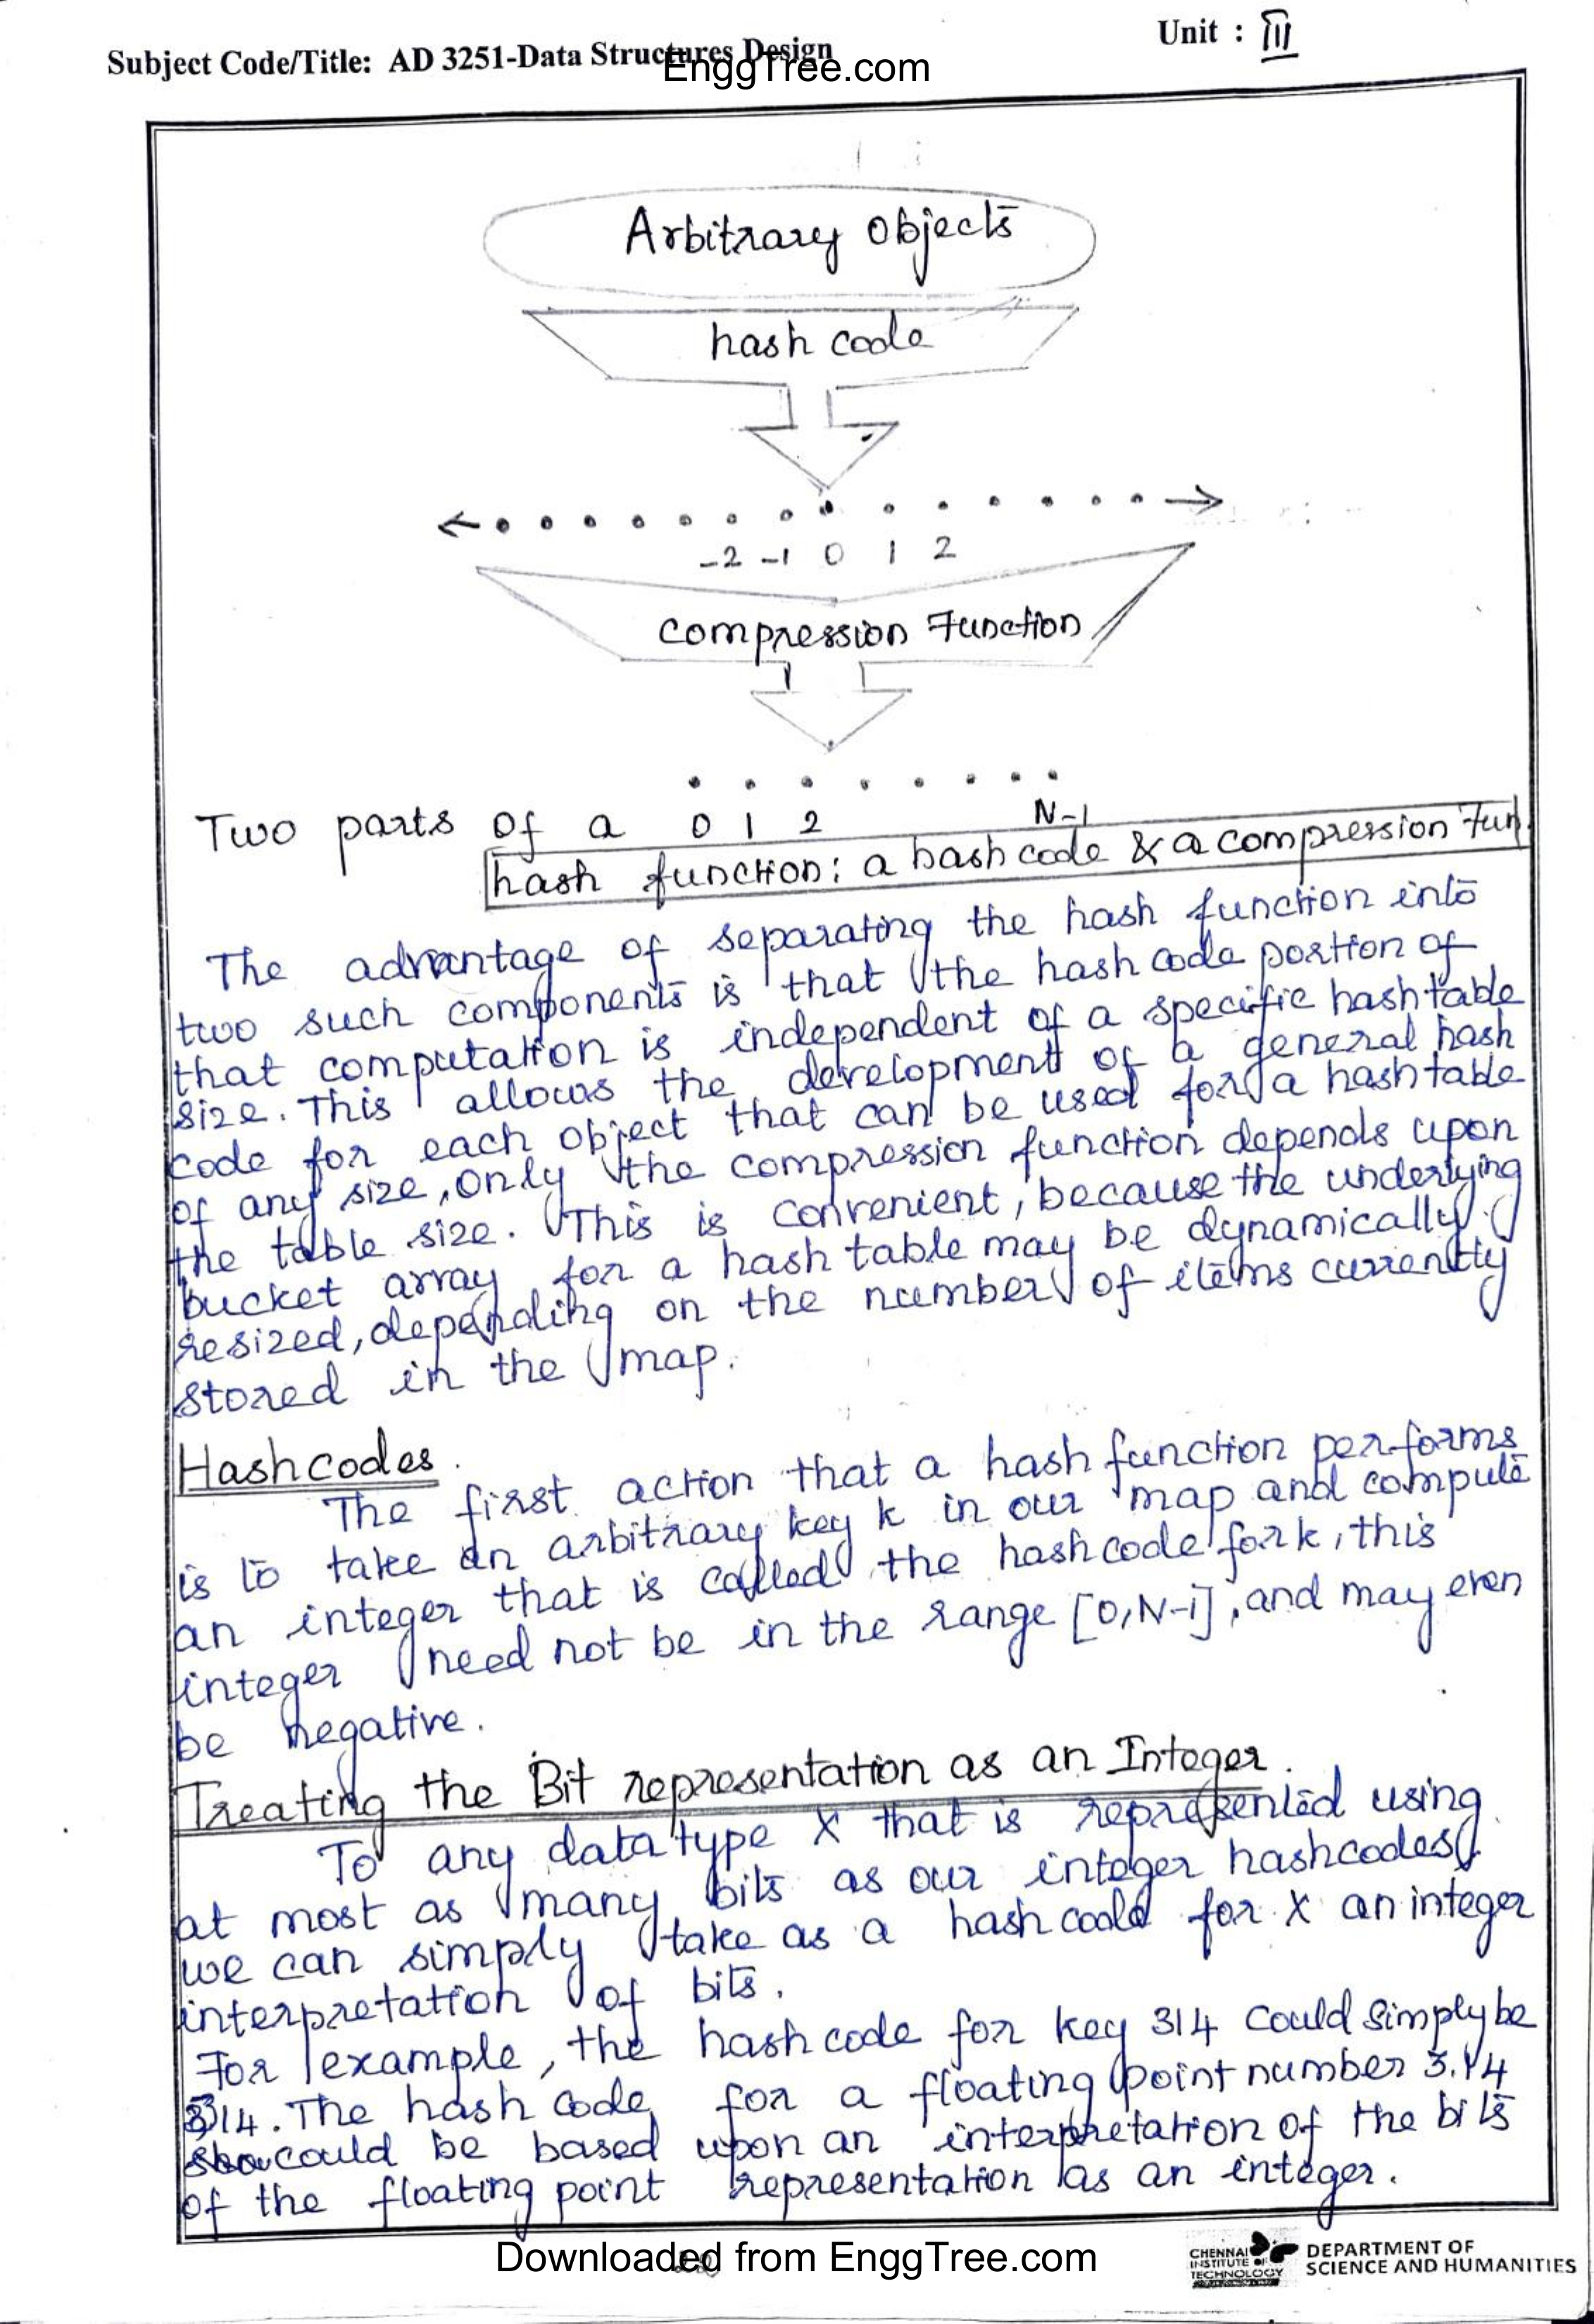 Unit : III
Subject Code/Title: AD 3251-Data Structures Design
EnggTree.com
Arbitrary Objects
hash code
-2 -1 0 1 2
compression Function
0 1 2 N-1
Two parts of a
hash function: a hash code & a compression Fun.
The advantage of separating the hash function into
two such components is that the hash code portion of
that computation is independent of a specific hash table
size. This allows the development of a general hash
code for each object that can be used for a hash table
of any size, only the compression function depends upon
the table size. This is convenient, because the underlying
bucket array for a hash table may be dynamically
resized, depending on the number of items currently
stored in the map.
Hashcodes.
The first action that a hash function performs
is to take an arbitrary key k in our map and compute
an integer that is called the hash code for k, this
integer need not be in the range [0,N-1], and may even
be negative.
Treating the Bit representation as an Integer.
To any data type X that is represented using
at most as many bits as our integer hashcodes,
we can simply take as a hash code for X an integer
interpretation of bits.
For example, the hash code for key 314 could simply be
314. The hash code for a floating point number 3.14
could be based upon an interpretation of the bits
of the floating point representation as an integer.
Downloaded from EnggTree.com
CHENNAI
INSTITUTE OF
TECHNOLOGY
DEPARTMENT OF
SCIENCE AND HUMANITIES